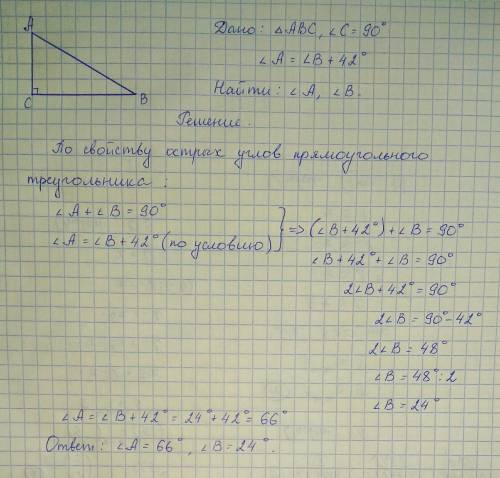 A
C
B
Дано: △ABC, ∠C = 90°
∠A = ∠B + 42°
Найти: ∠A, ∠B.
Решение.
По свойству острых углов прямоугольного
треугольника:
∠A + ∠B = 90°
∠A = ∠B + 42° (по условию) } => (∠B + 42°) + ∠B = 90°
∠B + 42° + ∠B = 90°
2∠B + 42° = 90°
2∠B = 90° - 42°
2∠B = 48°
∠B = 48° : 2
∠B = 24°
∠A = ∠B + 42° = 24° + 42° = 66°
Ответ: ∠A = 66°, ∠B = 24°.